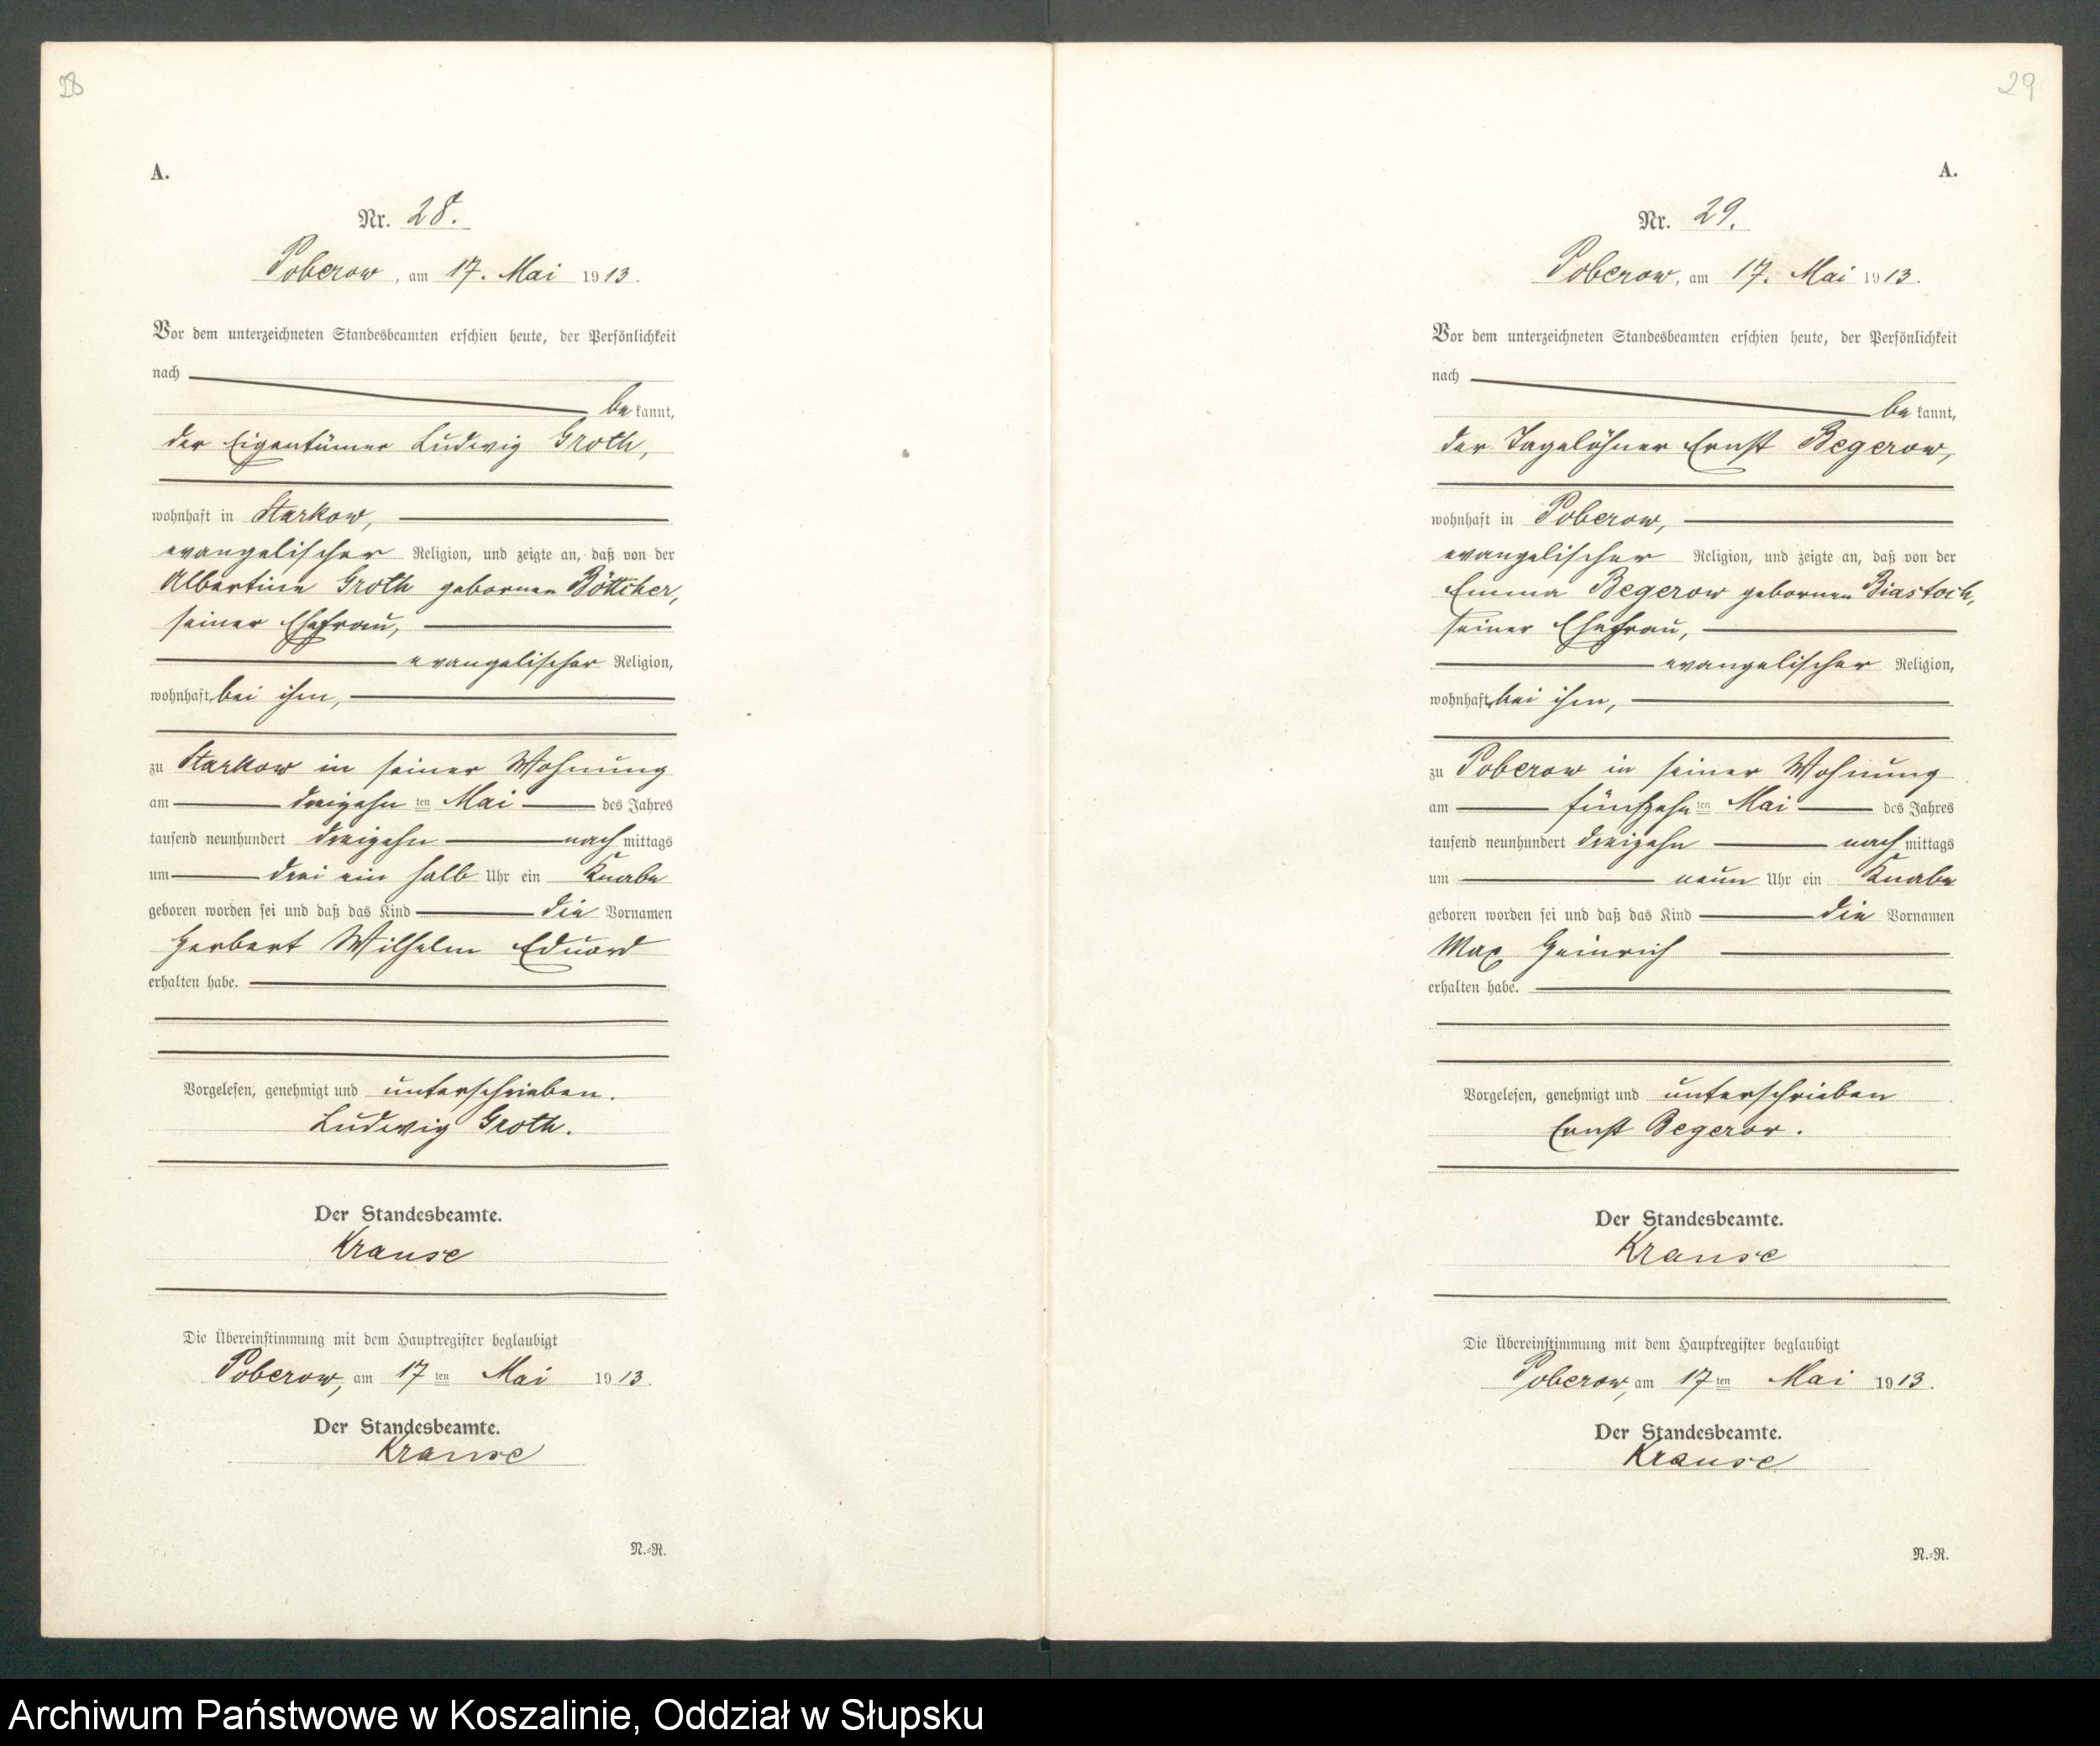 28
A.
Nr. 28.
Poberow, am 17. Mai 1913.
Vor dem unterzeichneten Standesbeamten erschien heute, der Persönlichkeit
nach
be kannt,
der Eigentümer Ludwig Groth,
wohnhaft in Starkow,
evangelischer Religion, und zeigte an, daß von der
Albertine Groth gebornen Böttcher,
seiner Ehefrau,
evangelischer Religion,
wohnhaft bei ihm,
zu Starkow in seiner Wohnung
am dreizehn ten Mai des Jahres
tausend neunhundert dreizehn nach mittags
um drei ein halb Uhr ein Knabe
geboren worden sei und daß das Kind die Vornamen
Herbert Wilhelm Eduard
erhalten habe.
Vorgelesen, genehmigt und unterschrieben.
Ludwig Groth.
Der Standesbeamte.
Krause
Die Übereinstimmung mit dem Hauptregister beglaubigt
Poberow, am 17 ten Mai 1913.
Der Standesbeamte.
Krause
N.-R.
29
A.
Nr. 29.
Poberow, am 17. Mai 1913.
Vor dem unterzeichneten Standesbeamten erschien heute, der Persönlichkeit
nach
be kannt,
der Tagelöhner Ernst Begerow,
wohnhaft in Poberow,
evangelischer Religion, und zeigte an, daß von der
Emma Begerow gebornen Biastoch,
seiner Ehefrau,
evangelischer Religion,
wohnhaft bei ihm,
zu Poberow in seiner Wohnung
am fünfzehn ten Mai des Jahres
tausend neunhundert dreizehn nach mittags
um neun Uhr ein Knabe
geboren worden sei und daß das Kind die Vornamen
Max Heinrich
erhalten habe.
Vorgelesen, genehmigt und unterschrieben
Ernst Begerow.
Der Standesbeamte.
Krause
Die Übereinstimmung mit dem Hauptregister beglaubigt
Poberow, am 17 ten Mai 1913.
Der Standesbeamte.
Krause
N.-R.
Archiwum Państwowe w Koszalinie, Oddział w Słupsku